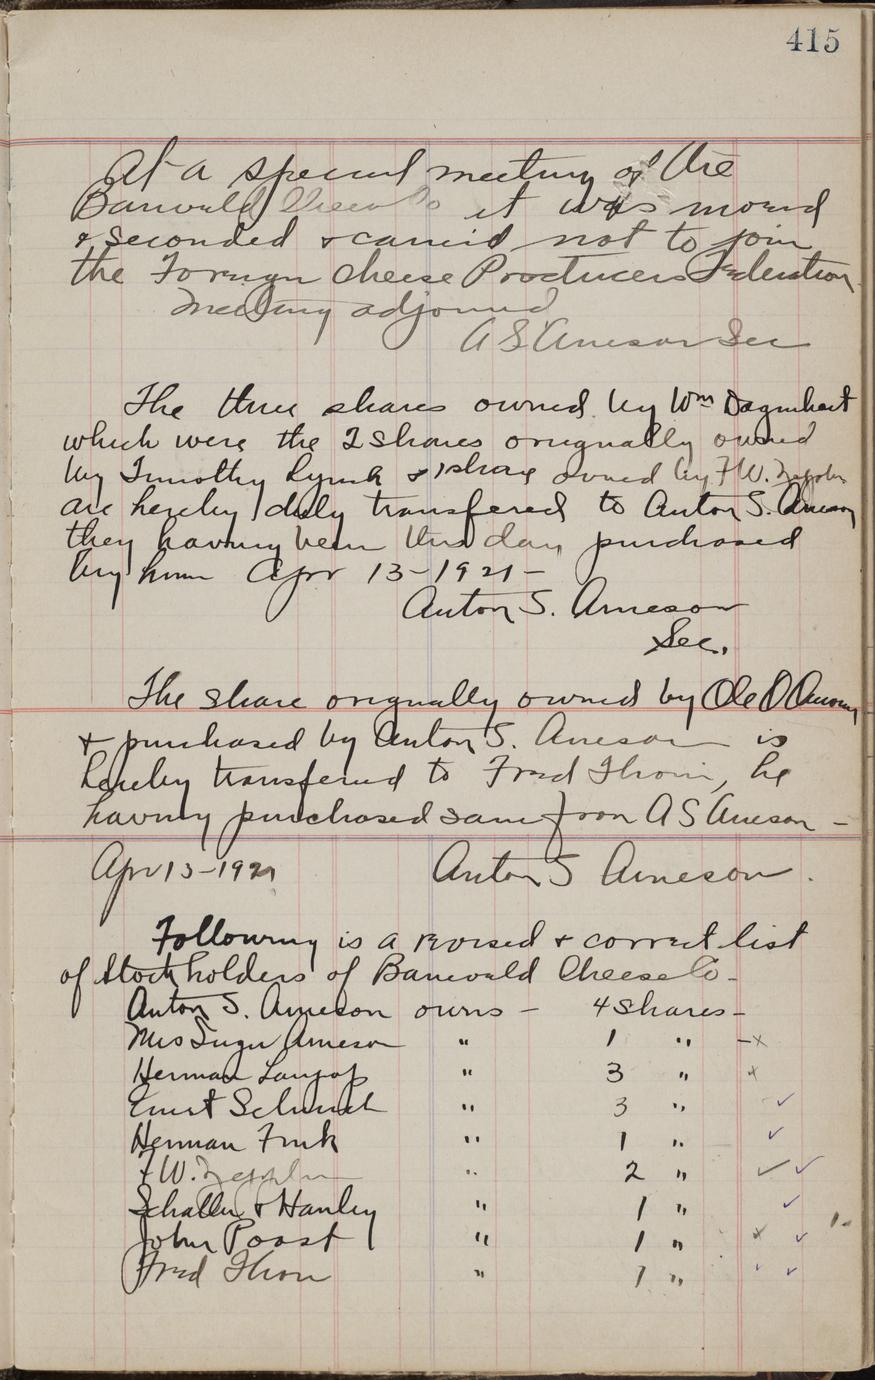 415
At a special meeting of the
Barwald Cheese Co it was moved
& seconded & carried not to join
the Foreign Cheese Producers Federation.
Meeting adjourned
A S Arneson Sec
The three shares owned by Wm
which were the 2 shares originally owned
by Timothy Lynch & 1 share owned by F W. Zepplin
are hereby duly transfered to Anton S. Arneson
they having been this day purchased
by him Apr 13-1921-
Anton S. Arneson
Sec.
The share originally owned by Ole O Arneson
& purchased by Anton S. Arneson is
hereby transferred to Fred Thom, he
having purchased same from A S Arneson -
Apr 13-1921 Anton S Arneson.
Following is a revised & correct list
of Stockholders of Barwald Cheese Co-
Anton S. Arneson owns - 4 shares-
Mrs Arneson " 1 " - x
Herman " 3 " x
Ernst Schmidt " 3 " ✓
Herman Funk " 1 " ✓
F W. Zepplin " 2 " ✓ ✓
Schaller & Hanley " 1 " ✓
John Poast " 1 " x ✓
Fred Thom " 1 " ✓